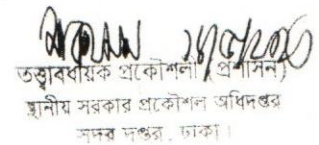 তত্ত্বাবধায়ক প্রকৌশলী (প্রশাসন)
স্থানীয় সরকার প্রকৌশল অধিদপ্তর
সদর দপ্তর, ঢাকা।